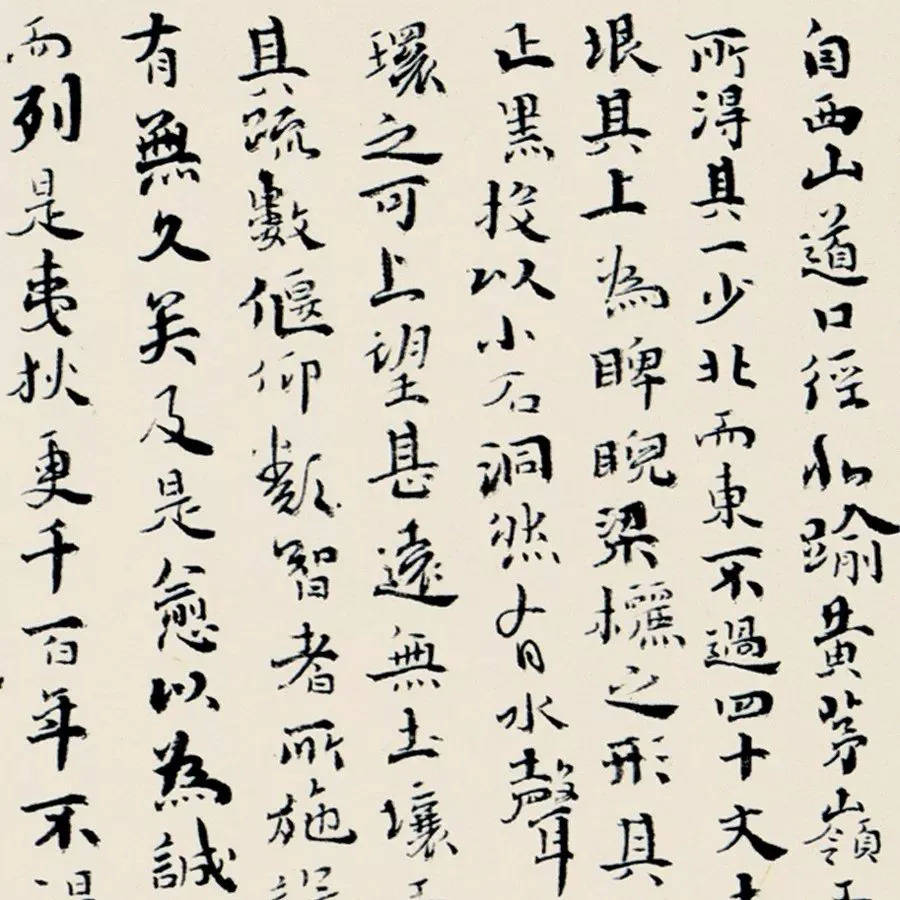 自西山道口徑北踰黄茅嶺
所得其一少北而東不過四十丈土
垠其上為睥睨梁欐之形其
正黑投以小石洞然有水聲
環之可上望甚遠無土壤
其疏數偃仰類智者所施設
有無久矣及是愈以為誠
而列是夷狄更千百年不得